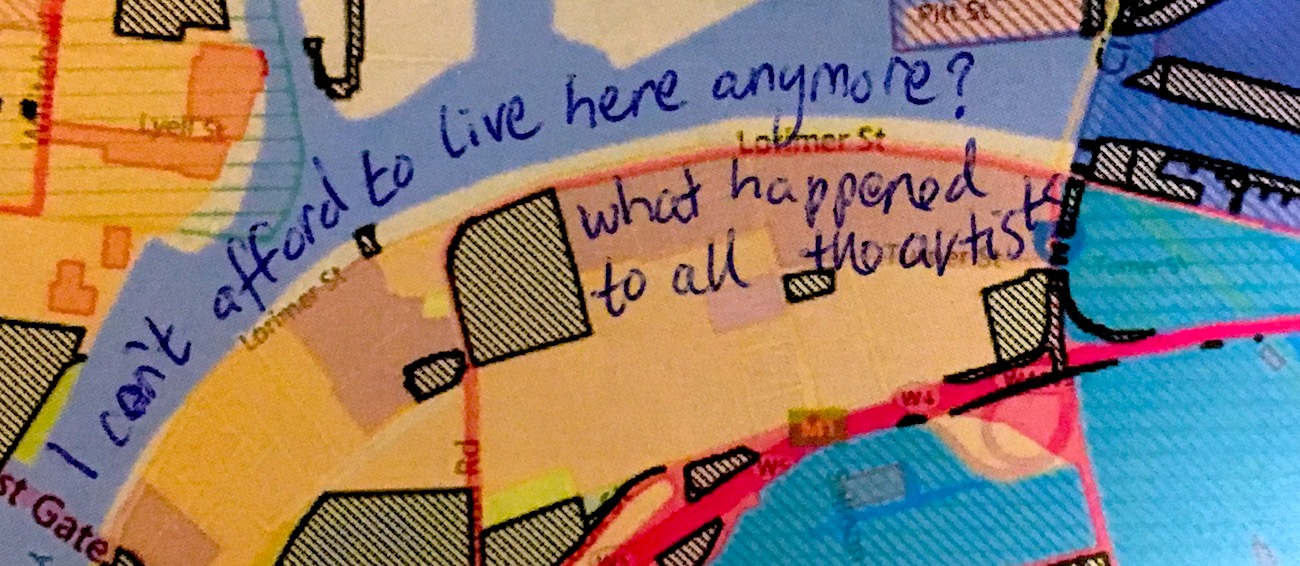 Pitt St
I can't afford to live here anymore?
Lyell St
Lorimer St
what happened
to all the artists
Lorimer St
M1
W4
Rd
st Gate